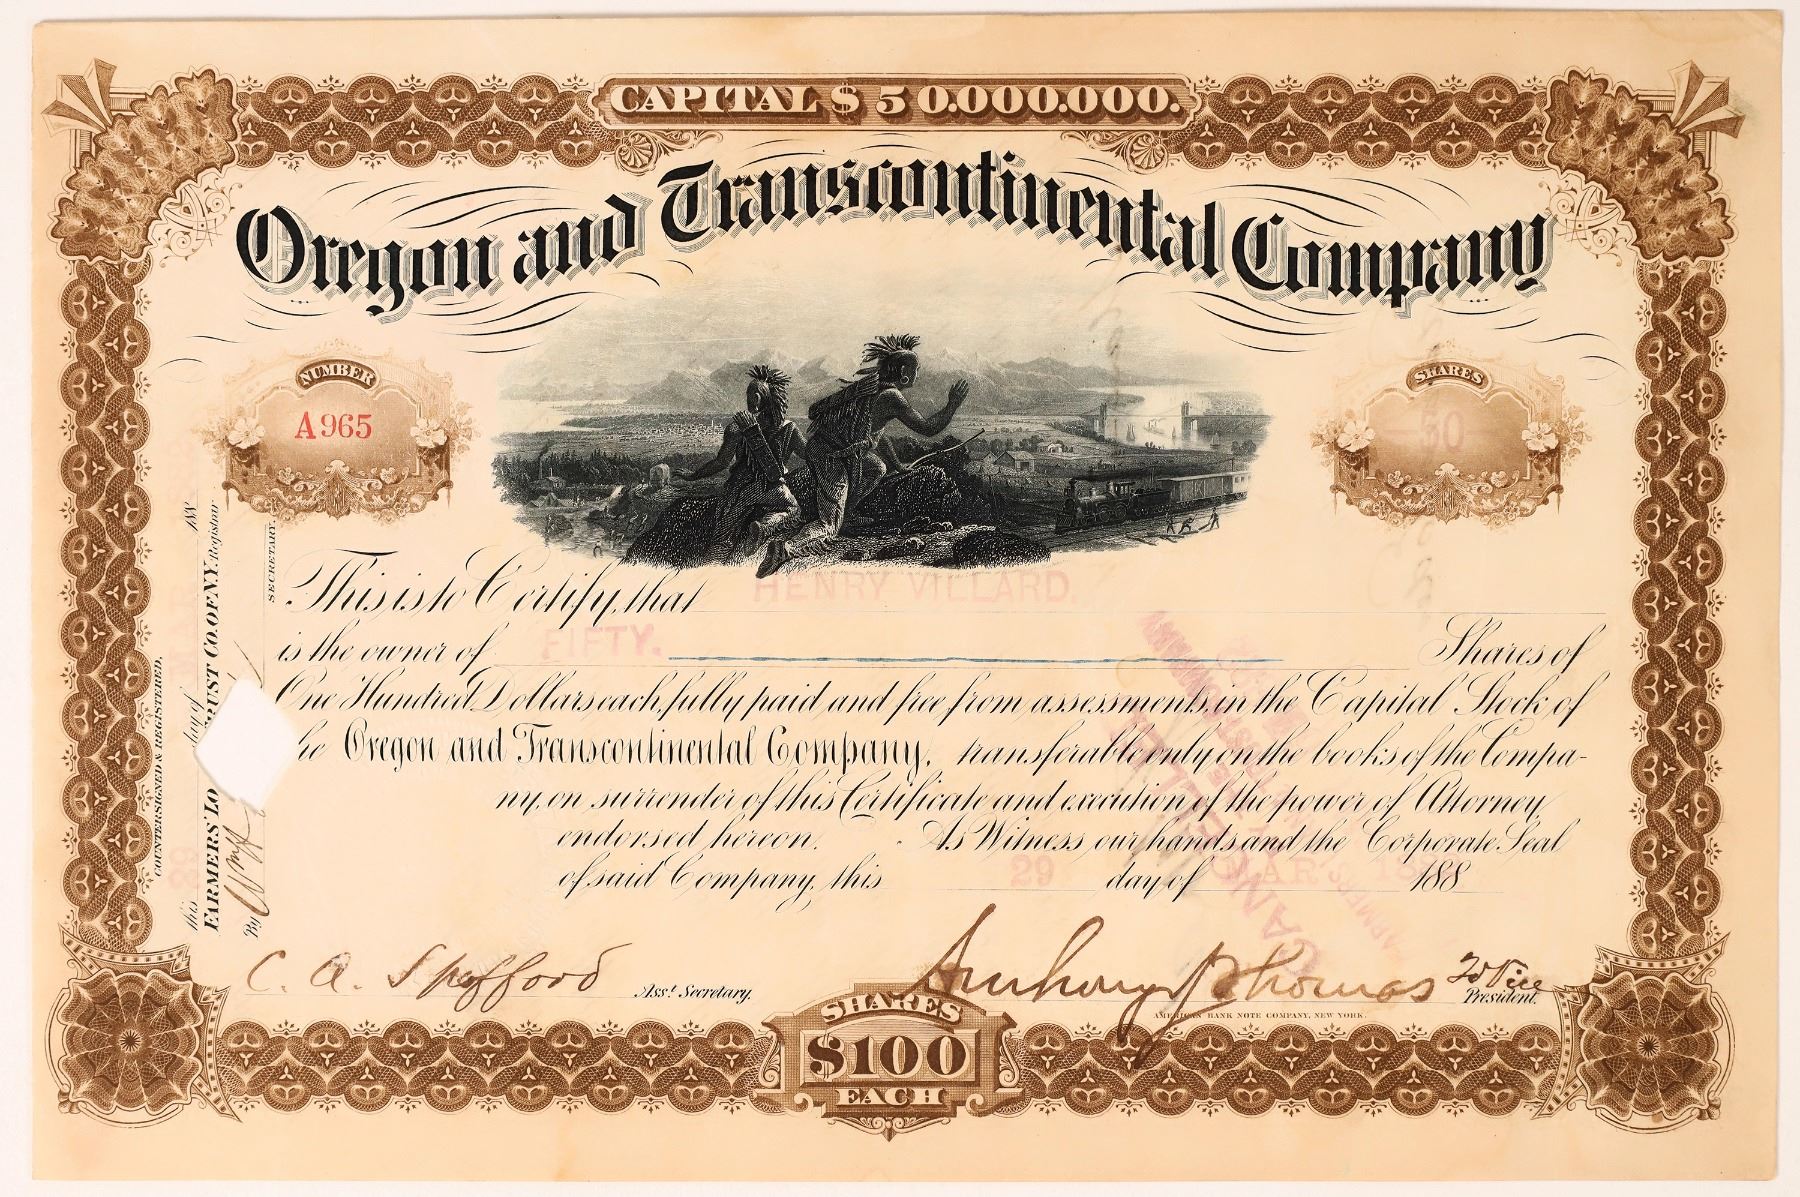 CAPITAL $ 50.000.000.
Oregon and Transcontinental Company
NUMBER
A965
SHARES
—50—
This is to Certify, that HENRY VILLARD.
is the owner of FIFTY. Shares of
One Hundred Dollars each, fully paid and free from assessments, in the Capital Stock of
he Oregon and Transcontinental Company, transferable only on the books of the Compa-
ny, on surrender of this Certificate and execution of the power of Attorney
endorsed hereon. As Witness our hands and the Corporate Seal
of said Company, this 29 day of MAR 188
C. A. Spofford Asst. Secretary.
Anthony J Thomas 2d Vice President.
AMERICAN BANK NOTE COMPANY, NEW YORK.
SHARES
$100
EACH
COUNTERSIGNED & REGISTERED.
this 29 day of MAR 188
FARMERS' LO TRUST CO. OF N.Y. Registrar
By
SECRETARY.